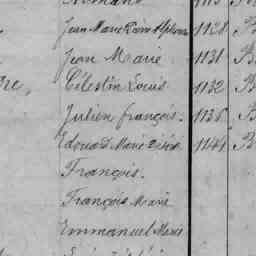 Jean Marie Pierre Alphonse 1128
Jean Marie 1131 B
Célestin Louis 1132 B
Julien françois. 1136 B
Edouard Marie Désiré 1141 B
François.
François Marie
Emmanuel Marie